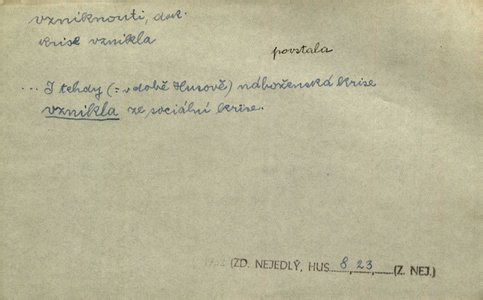 vzniknouti, dok.
krise vznikla
povstala
... I tehdy (: v době Husově) náboženská krise
vznikla ze sociální krise.
(ZD. NEJEDLÝ, HUS 8, 23, (Z. NEJ.)